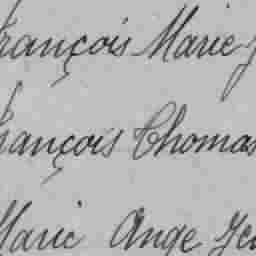 François Marie
François Thomas
Marie Ange